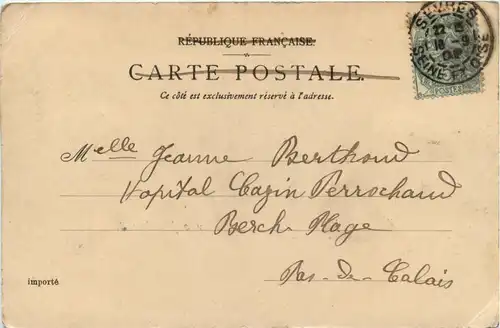 RÉPUBLIQUE FRANÇAISE.
CARTE POSTALE.
Ce côté est exclusivement réservé à l'adresse.
SEVRES
SEINE-ET-OISE
POSTES
Melle Jeanne Berthoud
Hopital Cazin Perrochaud
Berck Plage
Pas-de-Calais
importé